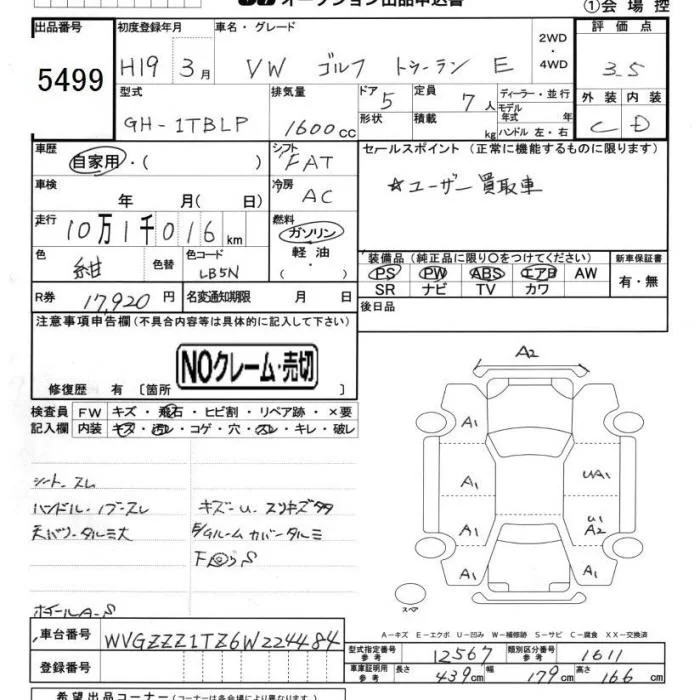 オークション出品申込書
①会場控
出品番号
5499
初度登録年月
H19 3月
車名・グレード
VW ゴルフ トゥーラン E
2WD
・
4WD
評価点
3.5
外装 内装
C D
型式
GH-1TBLP
排気量
1600cc
ドア 5
形状
定員 7人
積載 kg
ディーラー・並行
モデル年式 年式
ハンドル 左・右
車歴
自家用・( )
シフト
FAT
車検
年 月( 日)
冷房
AC
走行
10万1千016km
燃料
ガソリン
軽油
・
色
紺
色替
色コード
LB5N
R券 17,920円
名変通知期限 月 日
セールスポイント (正常に機能するものに限ります)
☆ユーザー買取車
装備品 (純正品に限り○をつけてください)
PS PW ABS エアB AW
SR ナビ TV カワ
新車保証書
有・無
後日品
注意事項申告欄 (不具合内容等は具体的に記入して下さい)
NOクレーム・売切
修復歴 有 〔箇所 〕
検査員記入欄
FW キズ・飛石・ヒビ割・リペア跡・×要
内装 キズ・汚レ・コゲ・穴・スレ・キレ・破レ
シート・スレ
ハンドル・ノブ・スレ
天バリ・タルミ大
キズ・U・スリキズ多々
F S
ホイールA-S
A2
A1
A1
A1
A1
UA1
U1
A2
A1
スペア
A-キズ E-エクボ U-凹み W-補修跡 S-サビ C-腐食 XX-交換済
車台番号 WVGZZZ1TZ6W224484
登録番号
型式指定番号 参考 12567
類別区分番号 参考 1611
車庫証明用 参考
長さ 439cm 幅 179cm 高さ 166cm
希望出品コーナー